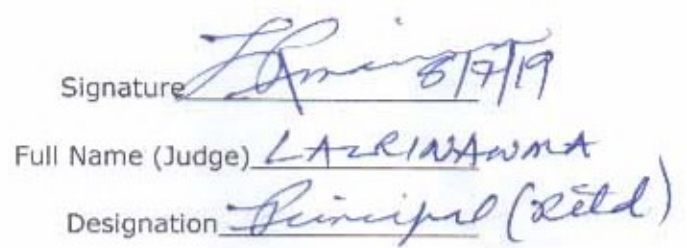 Signature 8/7/19
Full Name (Judge) LALRINAWMA
Designation Principal (Retd)